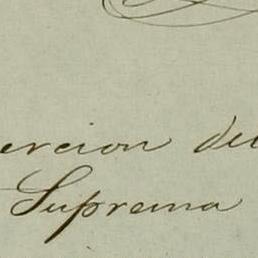 ercion del
Suprema